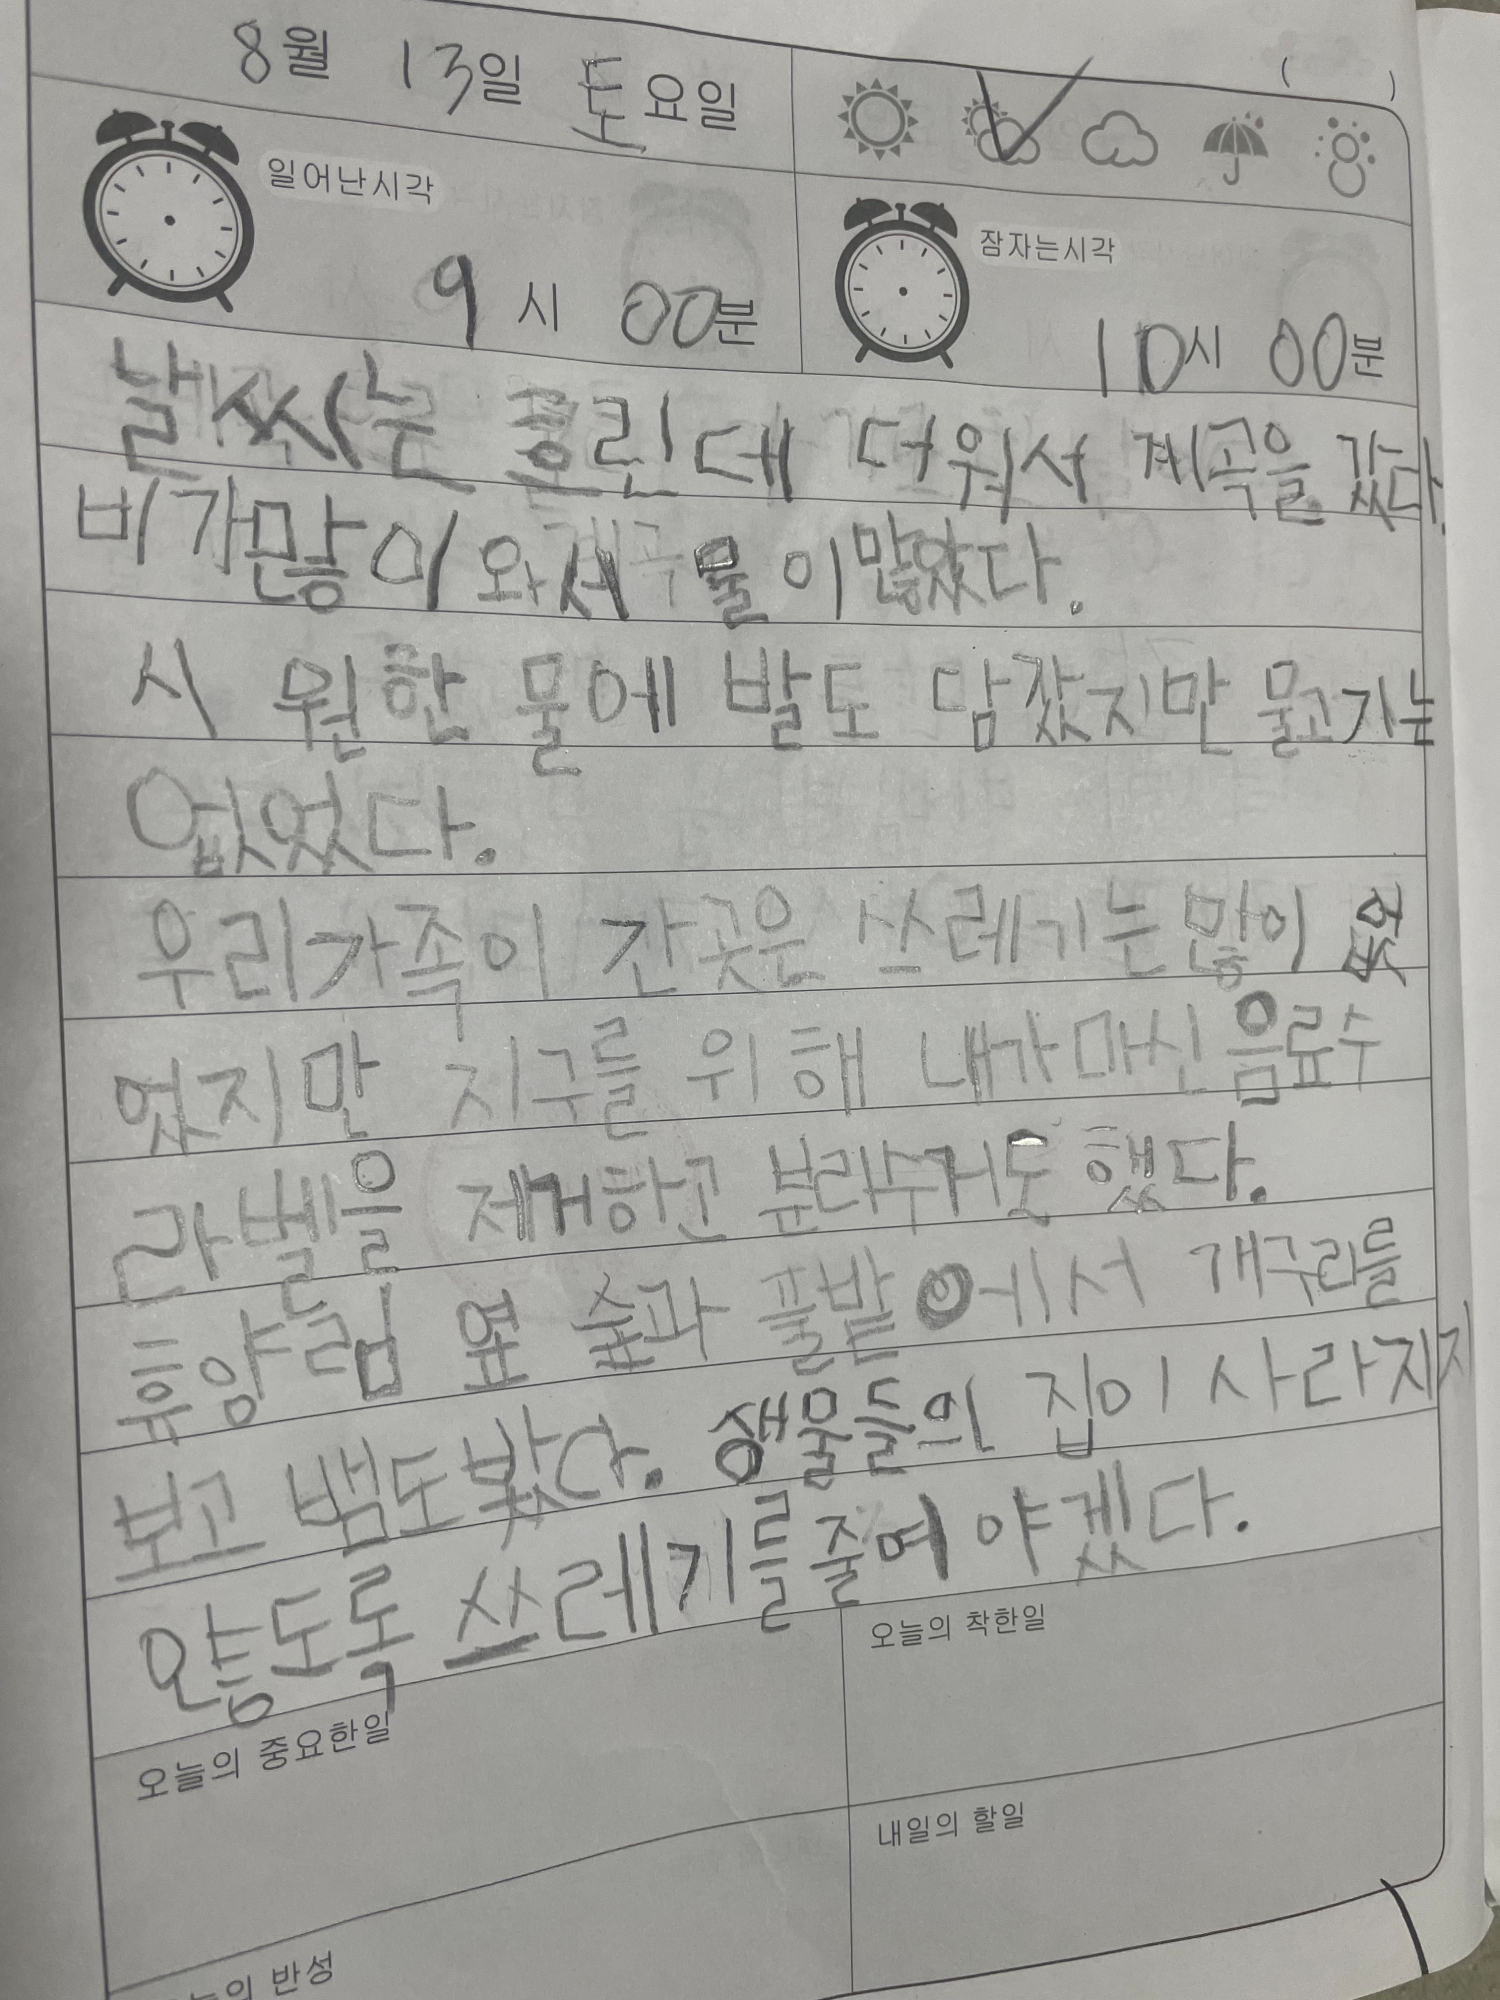 8월 13일 토요일 ( )
일어난시각
9시 00분
잠자는시각
10시 00분
날씨는 흐린데 더워서 계곡을 갔다.
비가많이 와서 물이많았다.
시원한 물에 발도 담갔지만 물고기는
없었다.
우리가족이 간곳은 쓰레기는많이 없
었지만 지구를 위해 내가마신음료수
라벨을 제거하고 분리수거도 했다.
휴양림 옆 숲과 풀밭에서 개구리를
보고 뱀도봤다. 생물들의 집이 사라지지
않도록 쓰레기를줄여야겠다.
오늘의 중요한일
오늘의 착한일
내일의 할일
의 반성